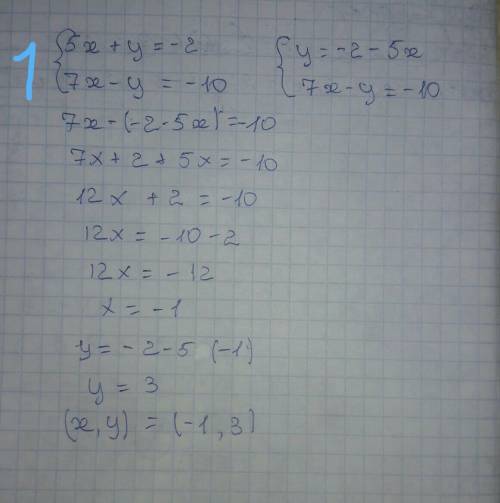 1 { 5x + y = -2 { y = -2 - 5x
7x - y = -10 7x - y = -10
7x - (-2 - 5x) = -10
7x + 2 + 5x = -10
12x + 2 = -10
12x = -10 - 2
12x = -12
x = -1
y = -2 - 5 (-1)
y = 3
(x, y) = (-1, 3)